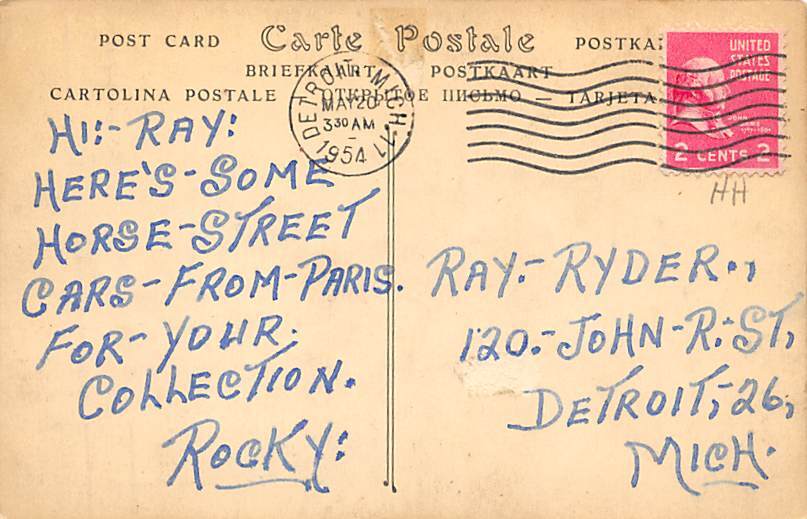 POST CARD Carte Postale POSTKA
BRIEFKAART POSTKAART
CARTOLINA POSTALE — ОТКРЫТОЕ ПИСЬМО — TARJETA
DETROIT, MICH. 11
MAY 20
3 30 AM
1954
UNITED
STATES
POSTAGE
JOHN
2 CENTS 2
HH
HI:-RAY:
HERE'S-SOME
HORSE-STREET
CARS-FROM-PARIS.
FOR-YOUR.
COLLECTION.
ROCKY:
RAY.-RYDER.,
120.-JOHN-R.-ST,
DETROIT,-26,
MICH.